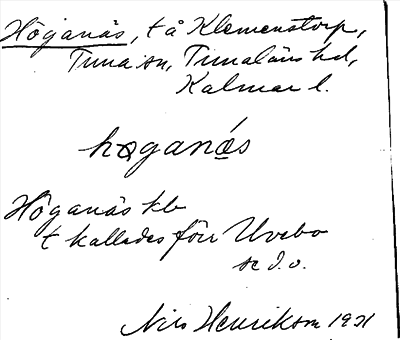 Höganäs, t å Klemenstorp,
Tuna sn, Tunaläns hd,
Kalmar l.
høganǻs
Höganäs kb
t kallades förr Uvebo
se d. o.
Nils Henrikson 1921